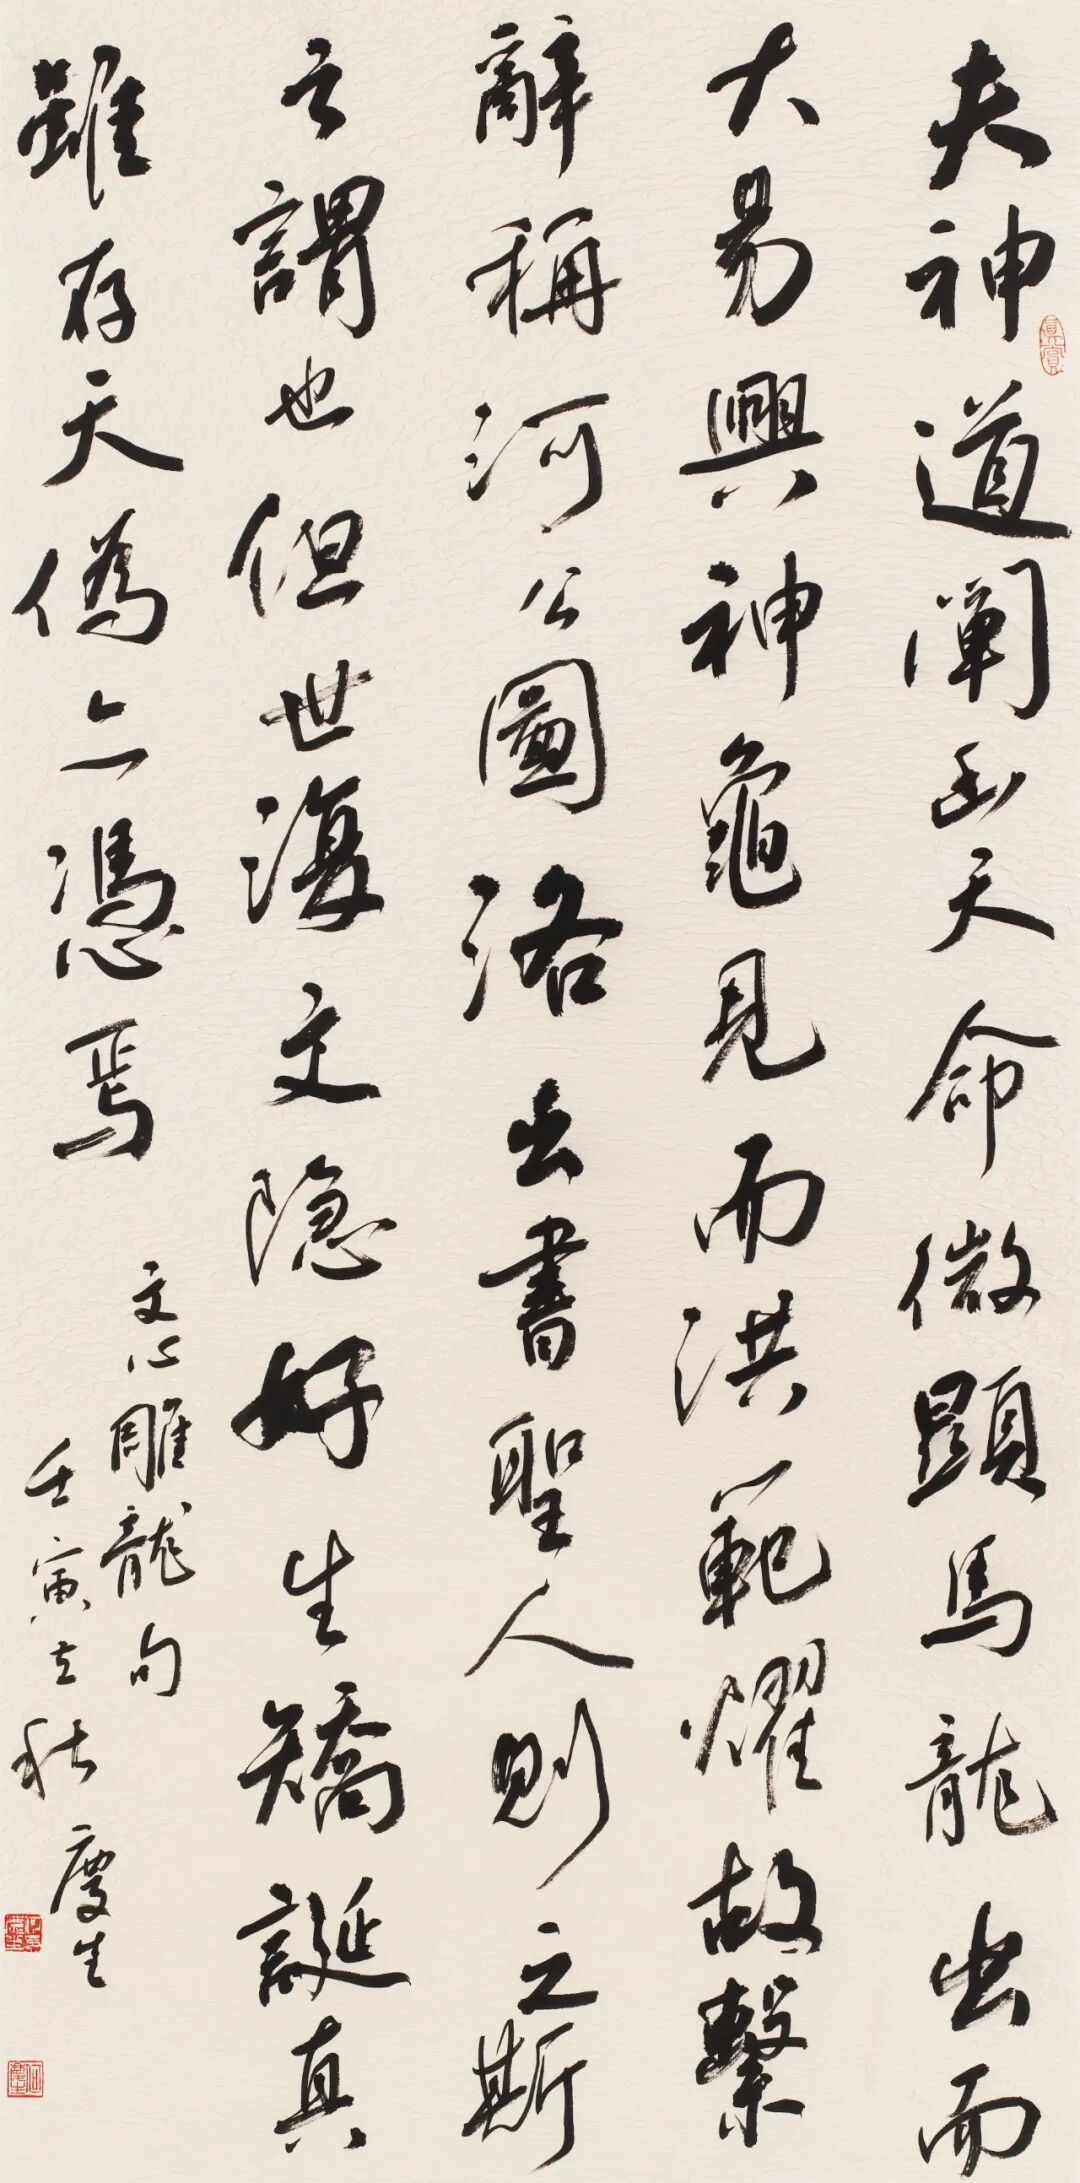 夫神道闡幽天命微顯馬龍出而
大易興神龜見而洪範耀故繫
辭稱河出圖洛出書聖人則之斯
之謂也但世復文隱好生矯誕真
雖存矣偽亦憑焉
文心雕龍句
壬寅立秋 慶生
真賞